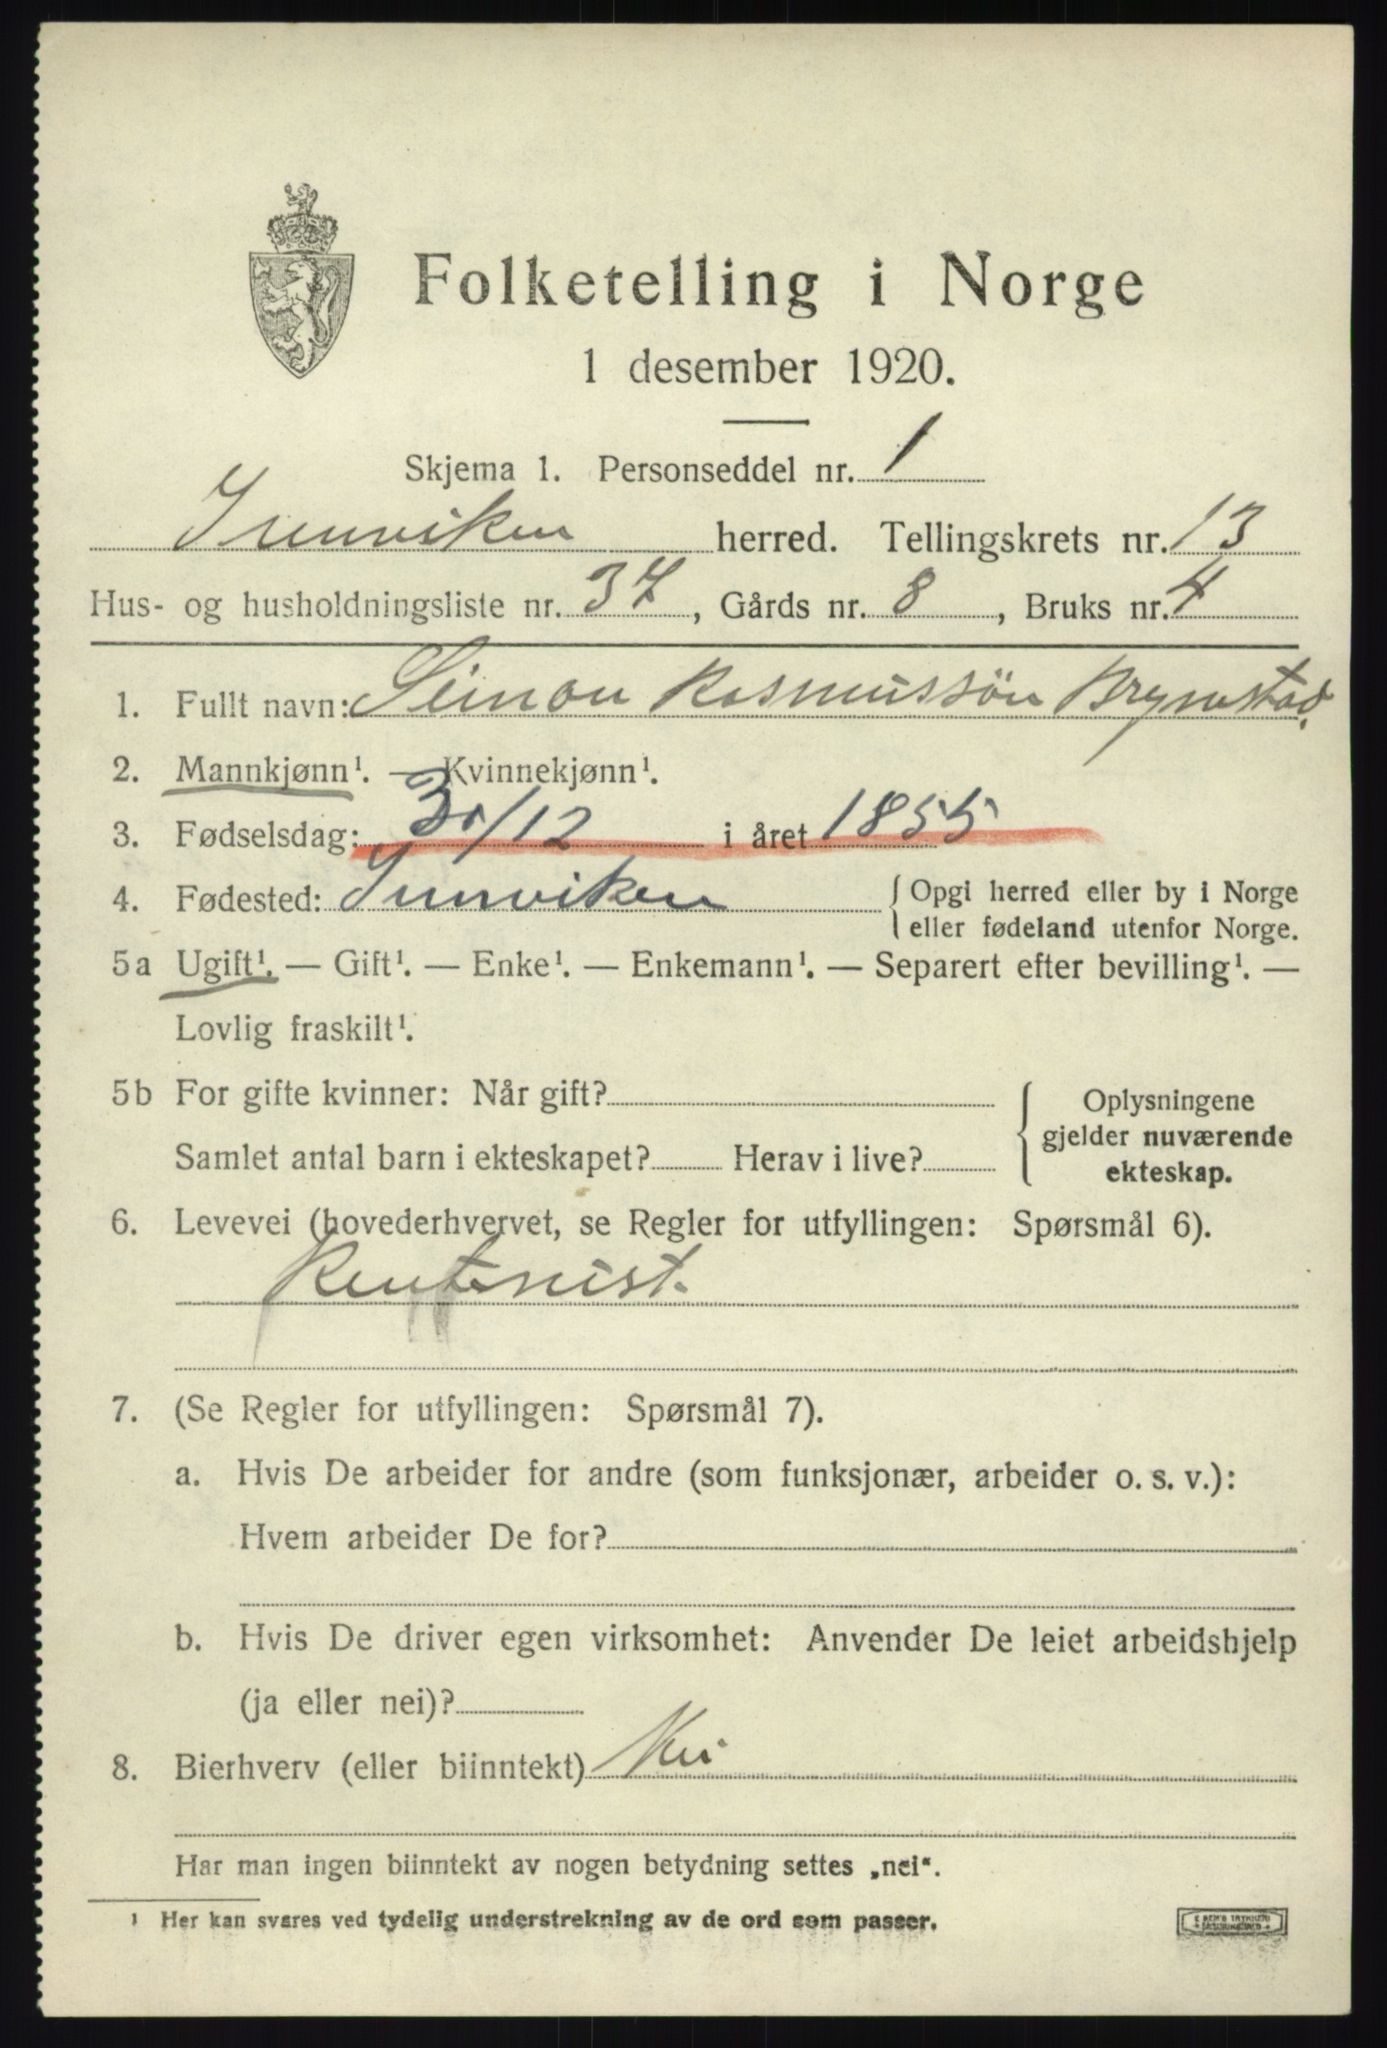 Folketelling i Norge
1 desember 1920.
Skjema 1. Personseddel nr. 1
Innviken herred. Tellingskrets nr. 13
Hus- og husholdningsliste nr. 37, Gårds nr. 8, Bruks nr. 4
1. Fullt navn: Simon Rasmussön Brynestad.
2. Mannkjønn¹. — Kvinnekjønn¹.
3. Fødselsdag: 30/12 i året 1855
4. Fødested: Innviken { Opgi herred eller by i Norge
eller fødeland utenfor Norge.
5a Ugift¹. — Gift¹. — Enke¹. — Enkemann¹. — Separert efter bevilling¹. —
Lovlig fraskilt¹.
5b For gifte kvinner: Når gift?
Samlet antal barn i ekteskapet? Herav i live?
Oplysningene
gjelder nuværende
ekteskap.
6. Levevei (hovederhvervet, se Regler for utfyllingen: Spørsmål 6).
Rentenist.
7. (Se Regler for utfyllingen: Spørsmål 7).
a. Hvis De arbeider for andre (som funksjonær, arbeider o. s. v.):
Hvem arbeider De for?
b. Hvis De driver egen virksomhet: Anvender De leiet arbeidshjelp
(ja eller nei)?
8. Bierhverv (eller biinntekt) Nei
Har man ingen biinntekt av nogen betydning settes „nei“.
¹ Her kan svares ved tydelig understrekning av de ord som passer.